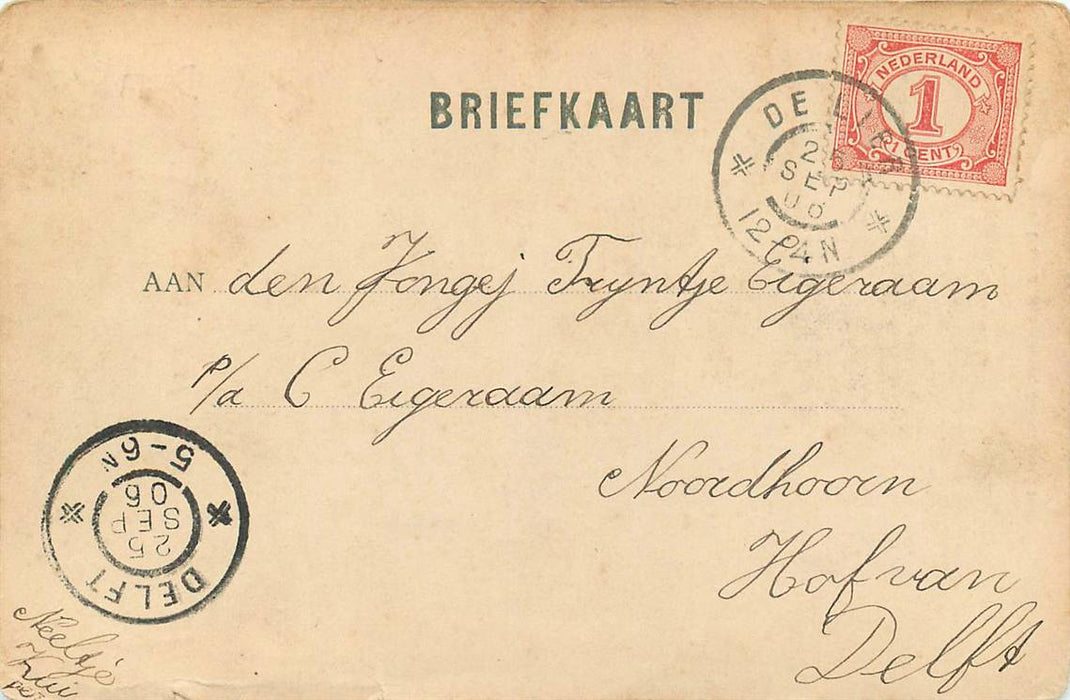 BRIEFKAART
NEDERLAND
1
1 CENT
DE LIER
SEP
06
12-4N
AAN den Jongej Tryntje Eigeraam
p/a C Eigeraam
Noordhoorn
Hof van
Delft
5-6N
06
SEP
25
DELFT
Neeltje